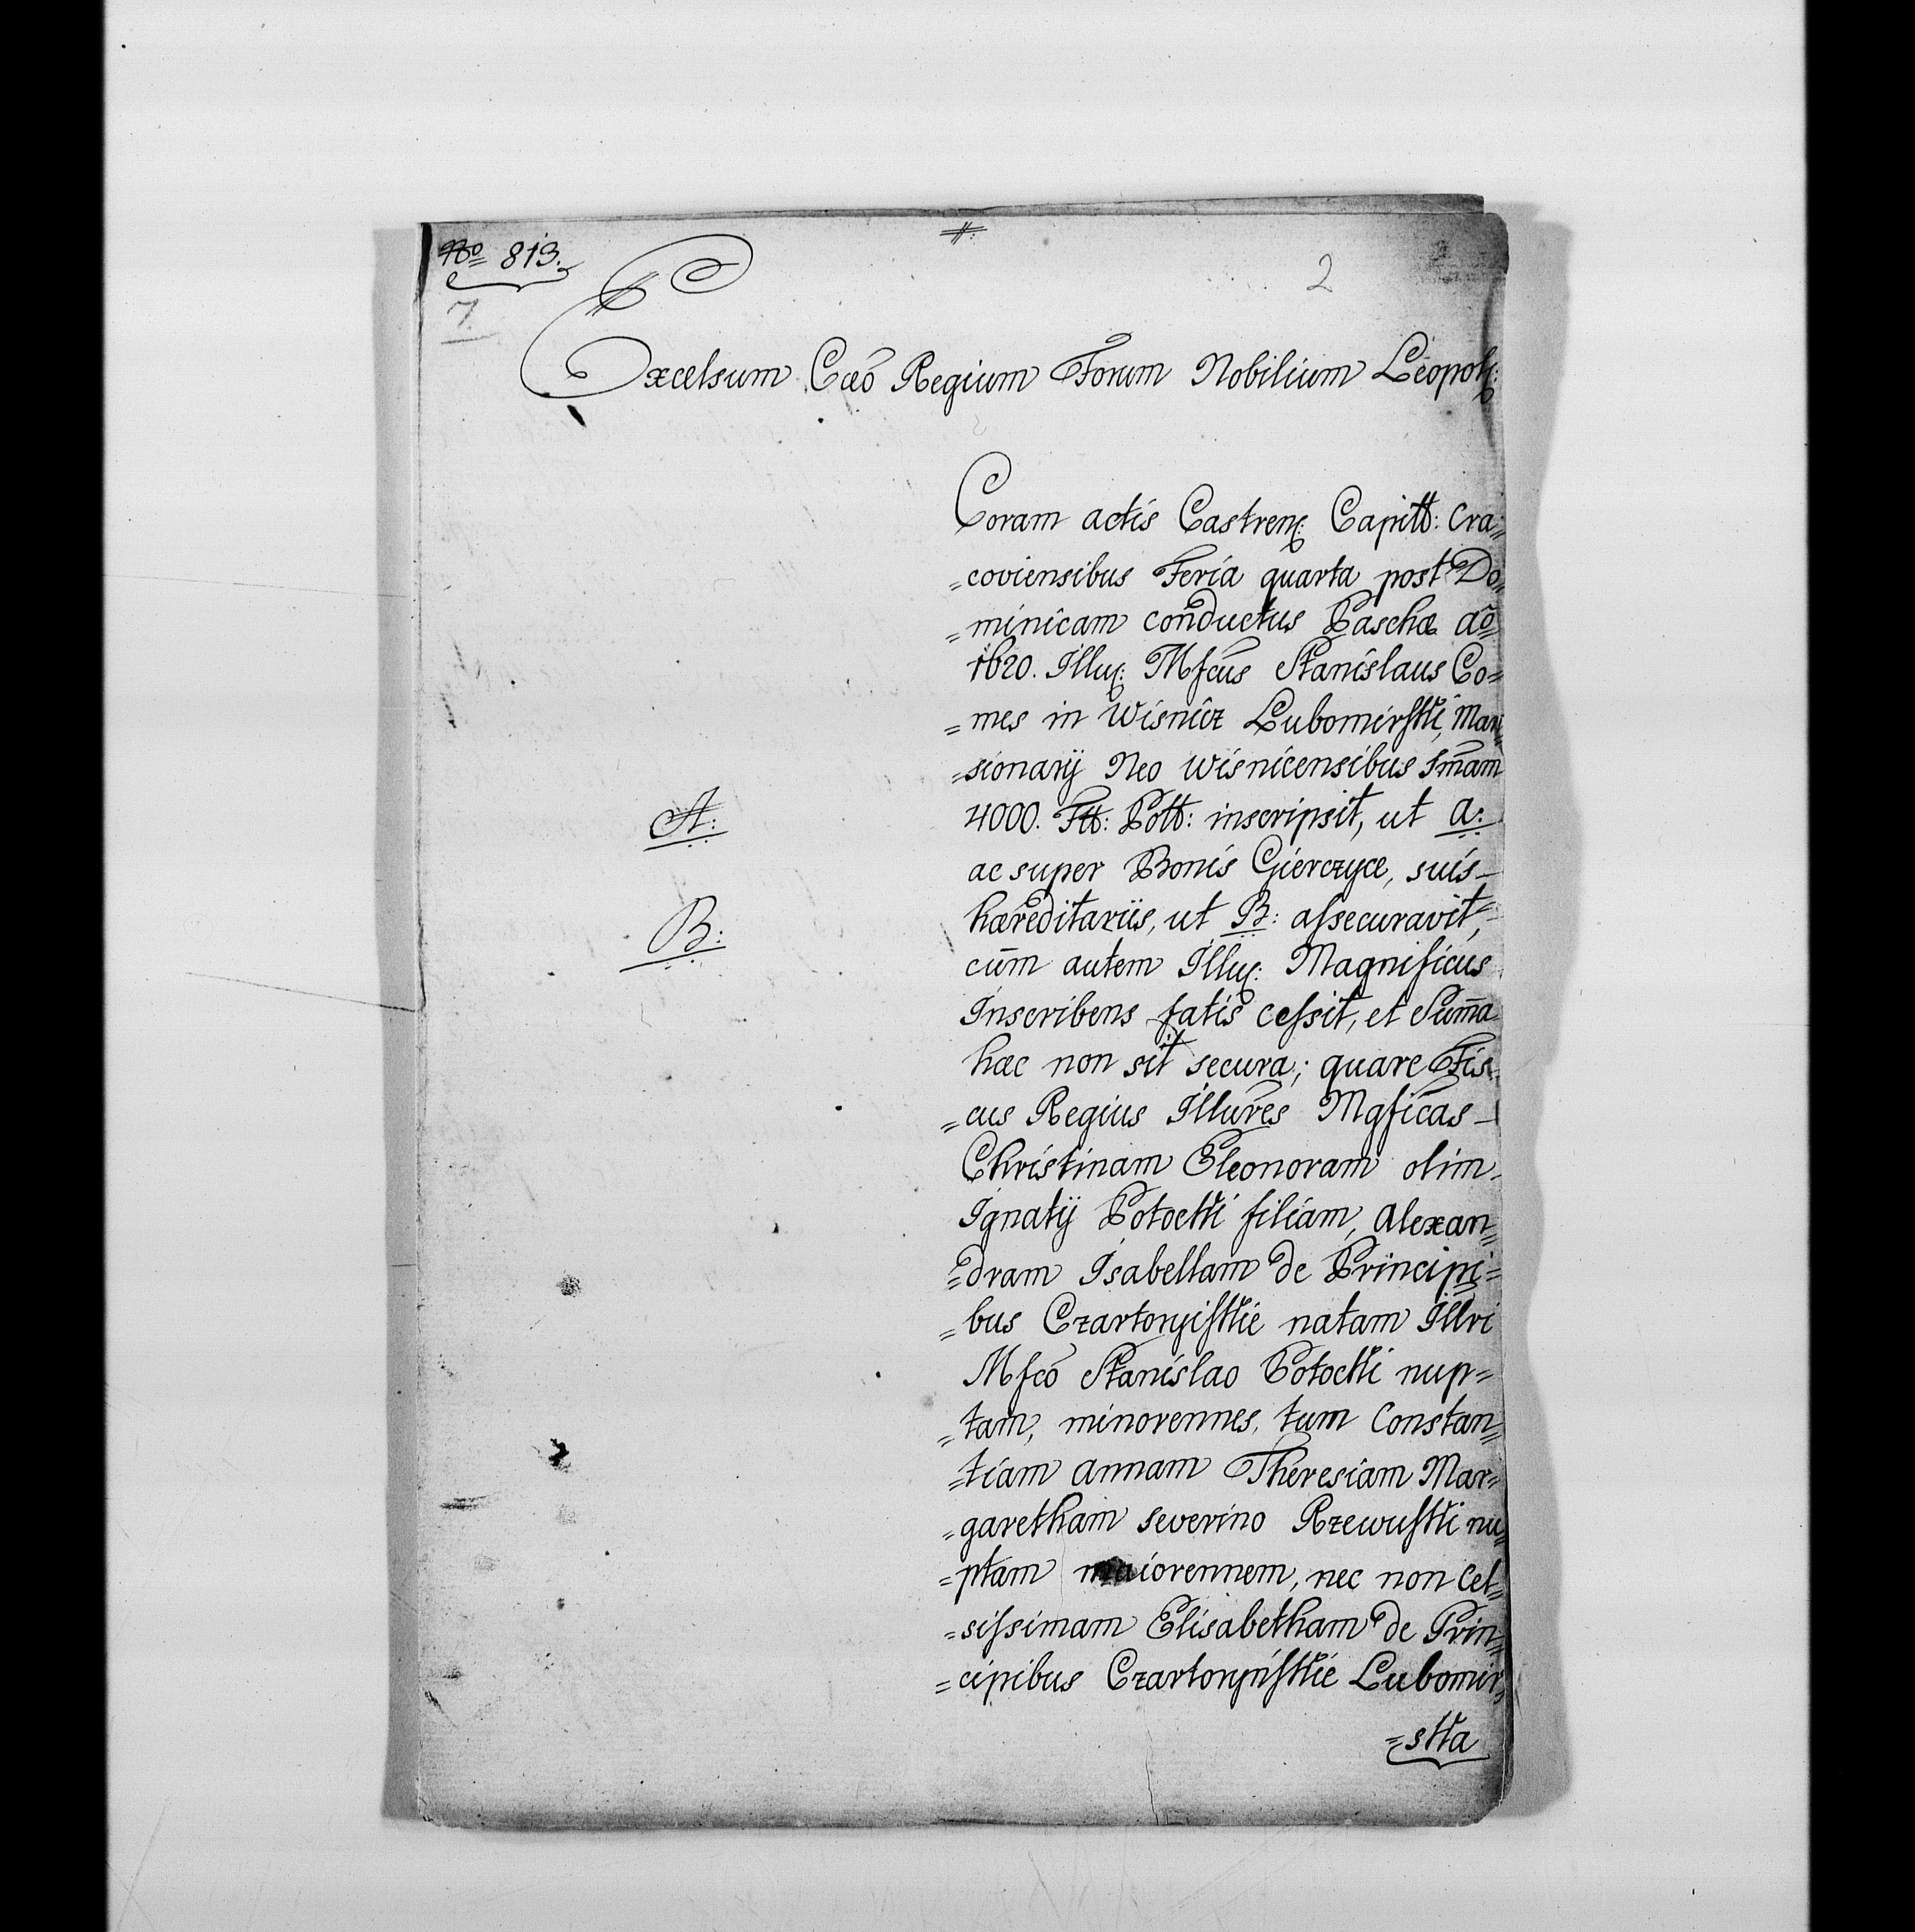 No 813.
#:
2
7.
Excelsum Caeo Regium Forum Nobilium Leopol:
Coram actis Castren: Capitt: Cra=
=coviensibus Feria quarta post Do=
=minicam conductus Paschæ Aõ
1620. Illu: Mfcus Stanislaus Co=
=mes in Wisnicz Lubomirski, Man=
=sionarij Neo Wisnicensibus Sm̃am
4000. Ftt: Poll: inscripsit, ut A:
ac super Bonis Gierczyce, suis
A:
hæreditariis, ut B: assecuravit,
B:
cūm autem Illu: Magnificus
Inscribens fatis cessit, et Sum̃a
hæc non sit secura; quare Fis=
=cus Regius Illures Mgficas
Christinam Eleonoram olim
Ignatij Potocki filiam, Alexan=
=dram Isabellam de Principi=
=bus Czartoryiskie natam Illri
Mfco Stanislao Potocki nup=
=tam, minorennes, tum Constan=
=tiam Annam Theresiam Mar=
=garetham Severino Rzewuski nu=
=ptam maiorennem, nec non Cel=
=sissimam Elisabetham de Prin=
=cipibus Czartoryiskie Lubomir=
=ska